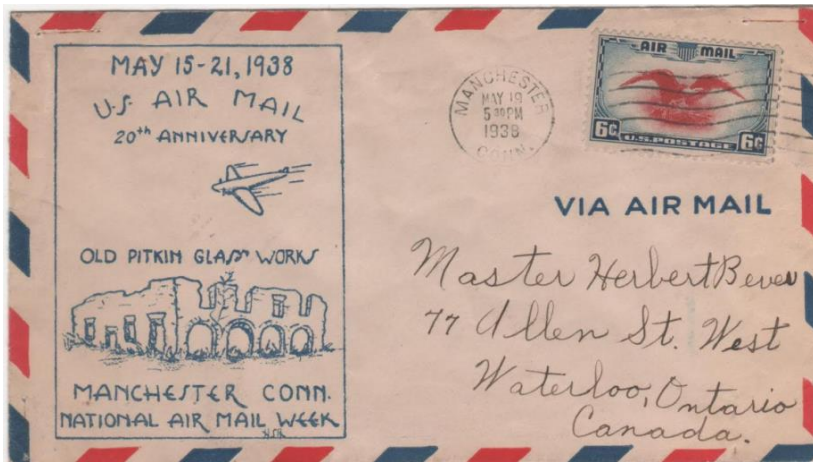 MAY 15-21, 1938
U.S. AIR MAIL
20th ANNIVERSARY
OLD PITKIN GLASS WORKS
MANCHESTER CONN.
NATIONAL AIR MAIL WEEK
MANCHESTER
MAY 19
5 30 PM
1938
CONN.
AIR MAIL
6¢ U.S. POSTAGE 6¢
VIA AIR MAIL
Master Herbert
77 Allen St. West
Waterloo, Ontario
Canada.